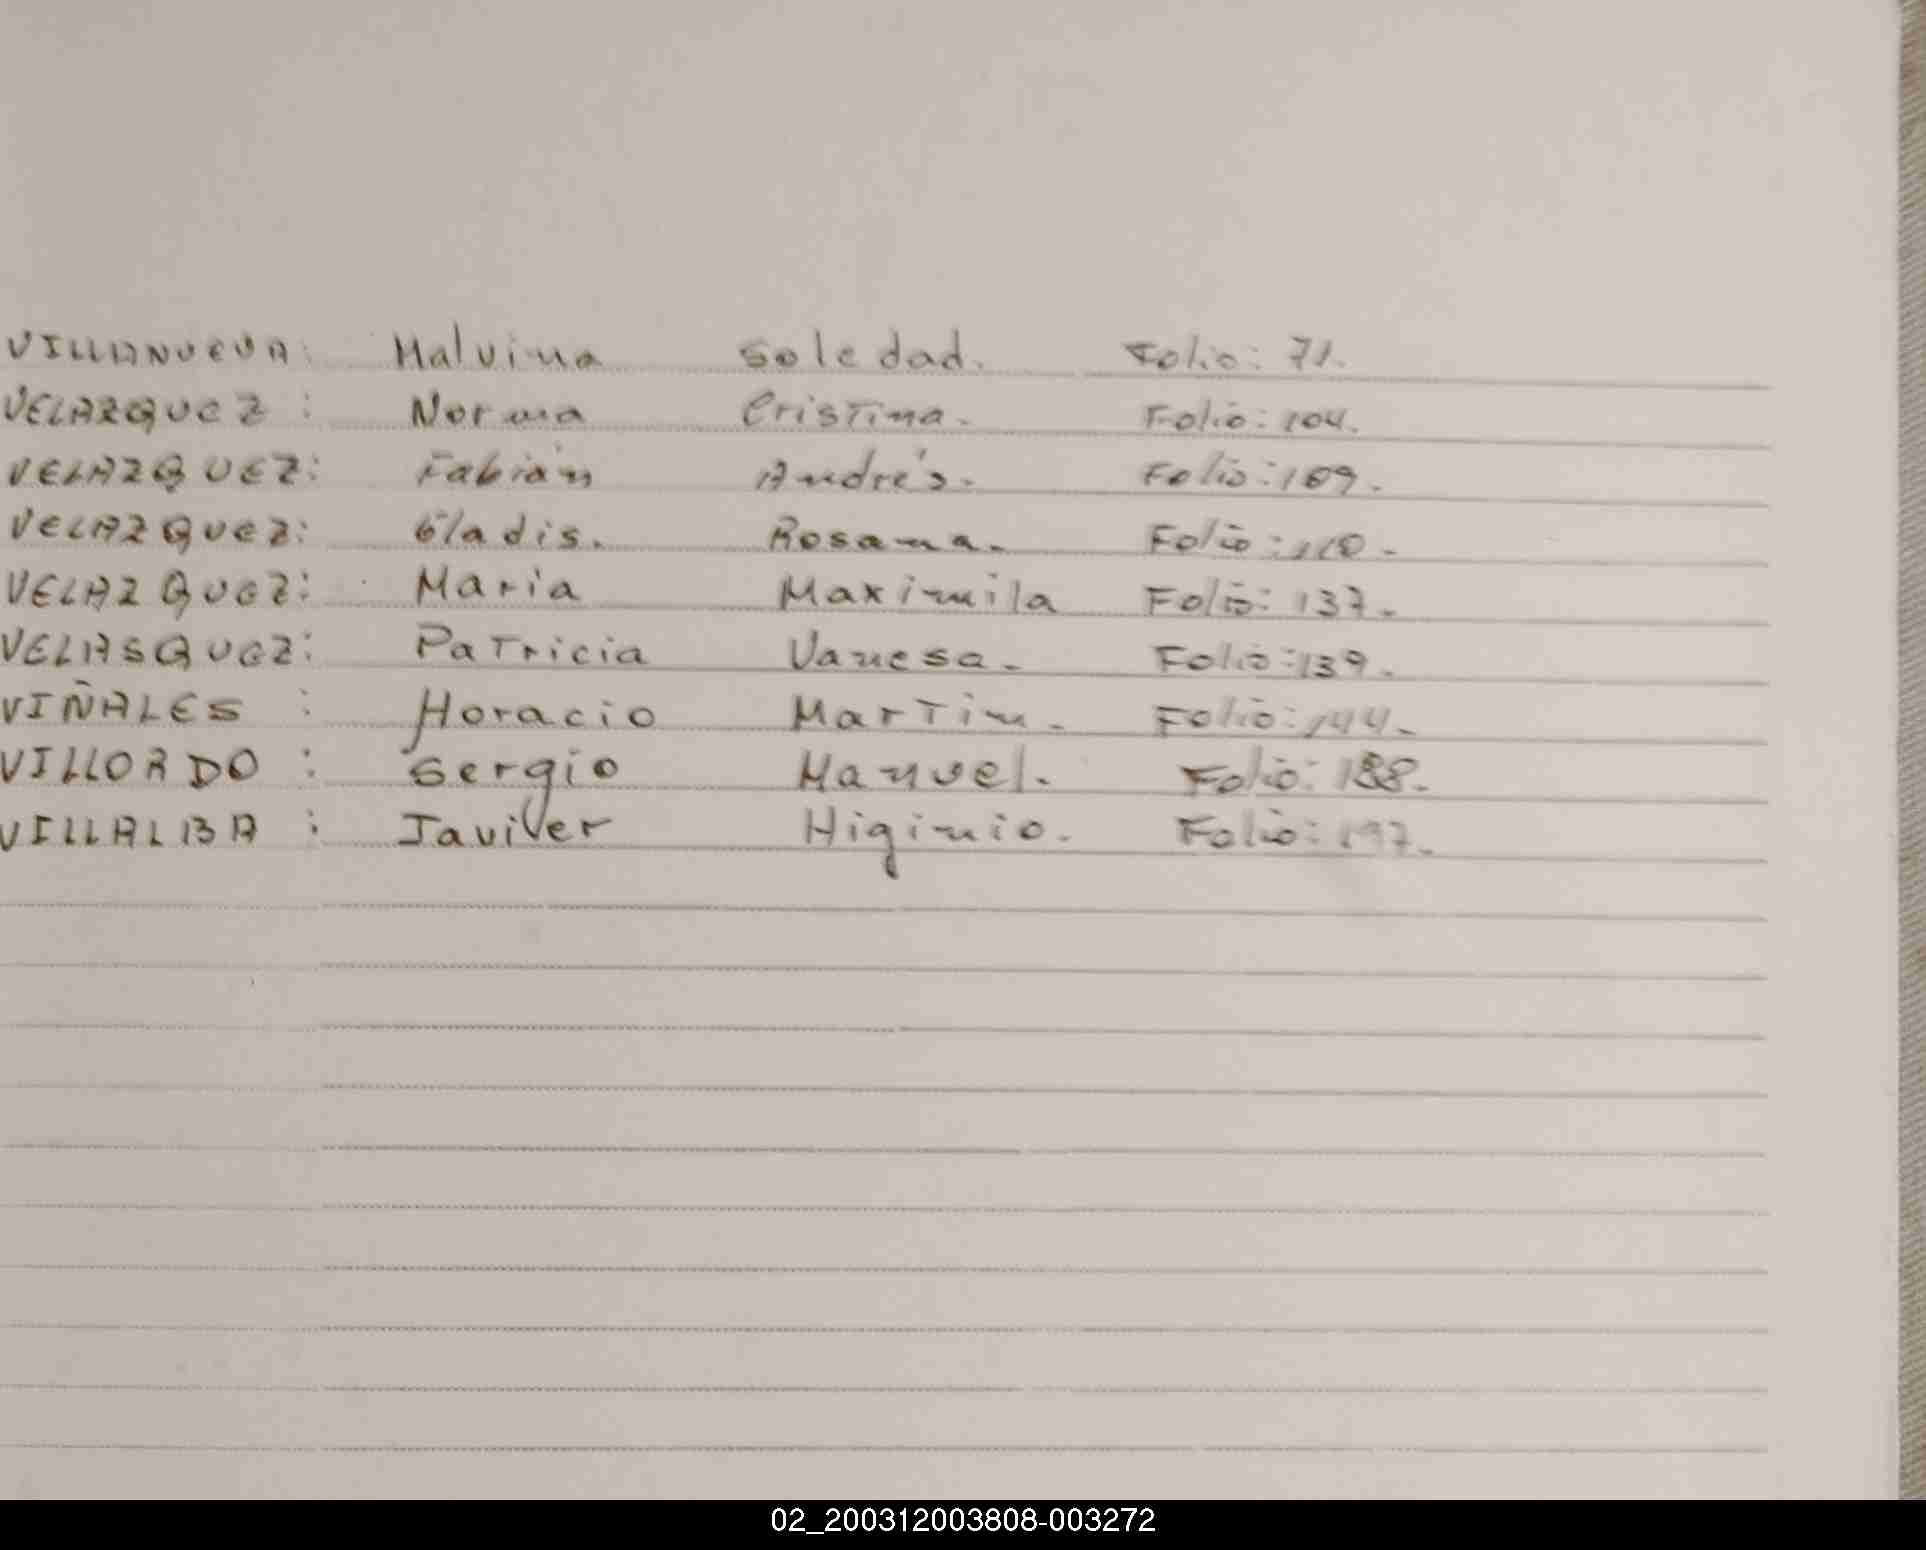 VILLANUEVA: Malvina Soledad. Folio: 71.
VELAZQUEZ: Norma Cristina. Folio: 104.
VELAZQUEZ: Fabián Andrés. Folio: 109.
VELAZQUEZ: Gladis. Rosana. Folio: 110.
VELAZQUEZ: Maria Maximila Folio: 137.
VELASQUEZ: Patricia Vanesa. Folio: 139.
VIÑALES: Horacio Martin. Folio: 144.
VILLORDO: Sergio Manuel. Folio: 188.
VILLALBA: Javier Higinio. Folio: 197.
02_200312003808-003272